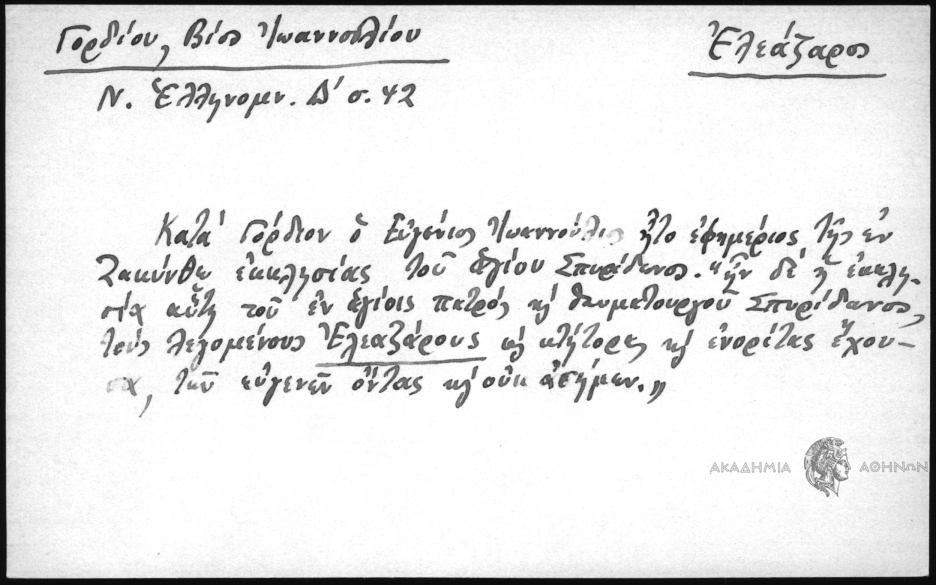 Γορδίου, Βίος Ἰωαννουλίου
Ἐλεάζαρος
Ν. Ἑλληνομν. Δ' σ. 42
Κατά Γόρδιον ὁ Εὐγένιος Ἰωαννούλιος ἦτο ἐφημέριος τῆς ἐν
Ζακύνθῳ ἐκκλησίας τοῦ ἁγίου Σπυρίδωνος. "ἦν δέ ἡ ἐκκλη-
σία αὕτη τοῦ ἐν ἁγίοις πατρός κ̀ θαυματουργοῦ Σπυρίδωνος,
τούς λεγομένους Ἐλεαζάρους ὡς κτήτορας κ̀ ἐνορίτας ἔχου-
σα, τῶν εὐγενῶν ὄντας κ̀ οὐκ ἀσήμων."
ΑΚΑΔΗΜΙΑ ΑΘΗΝΩΝ